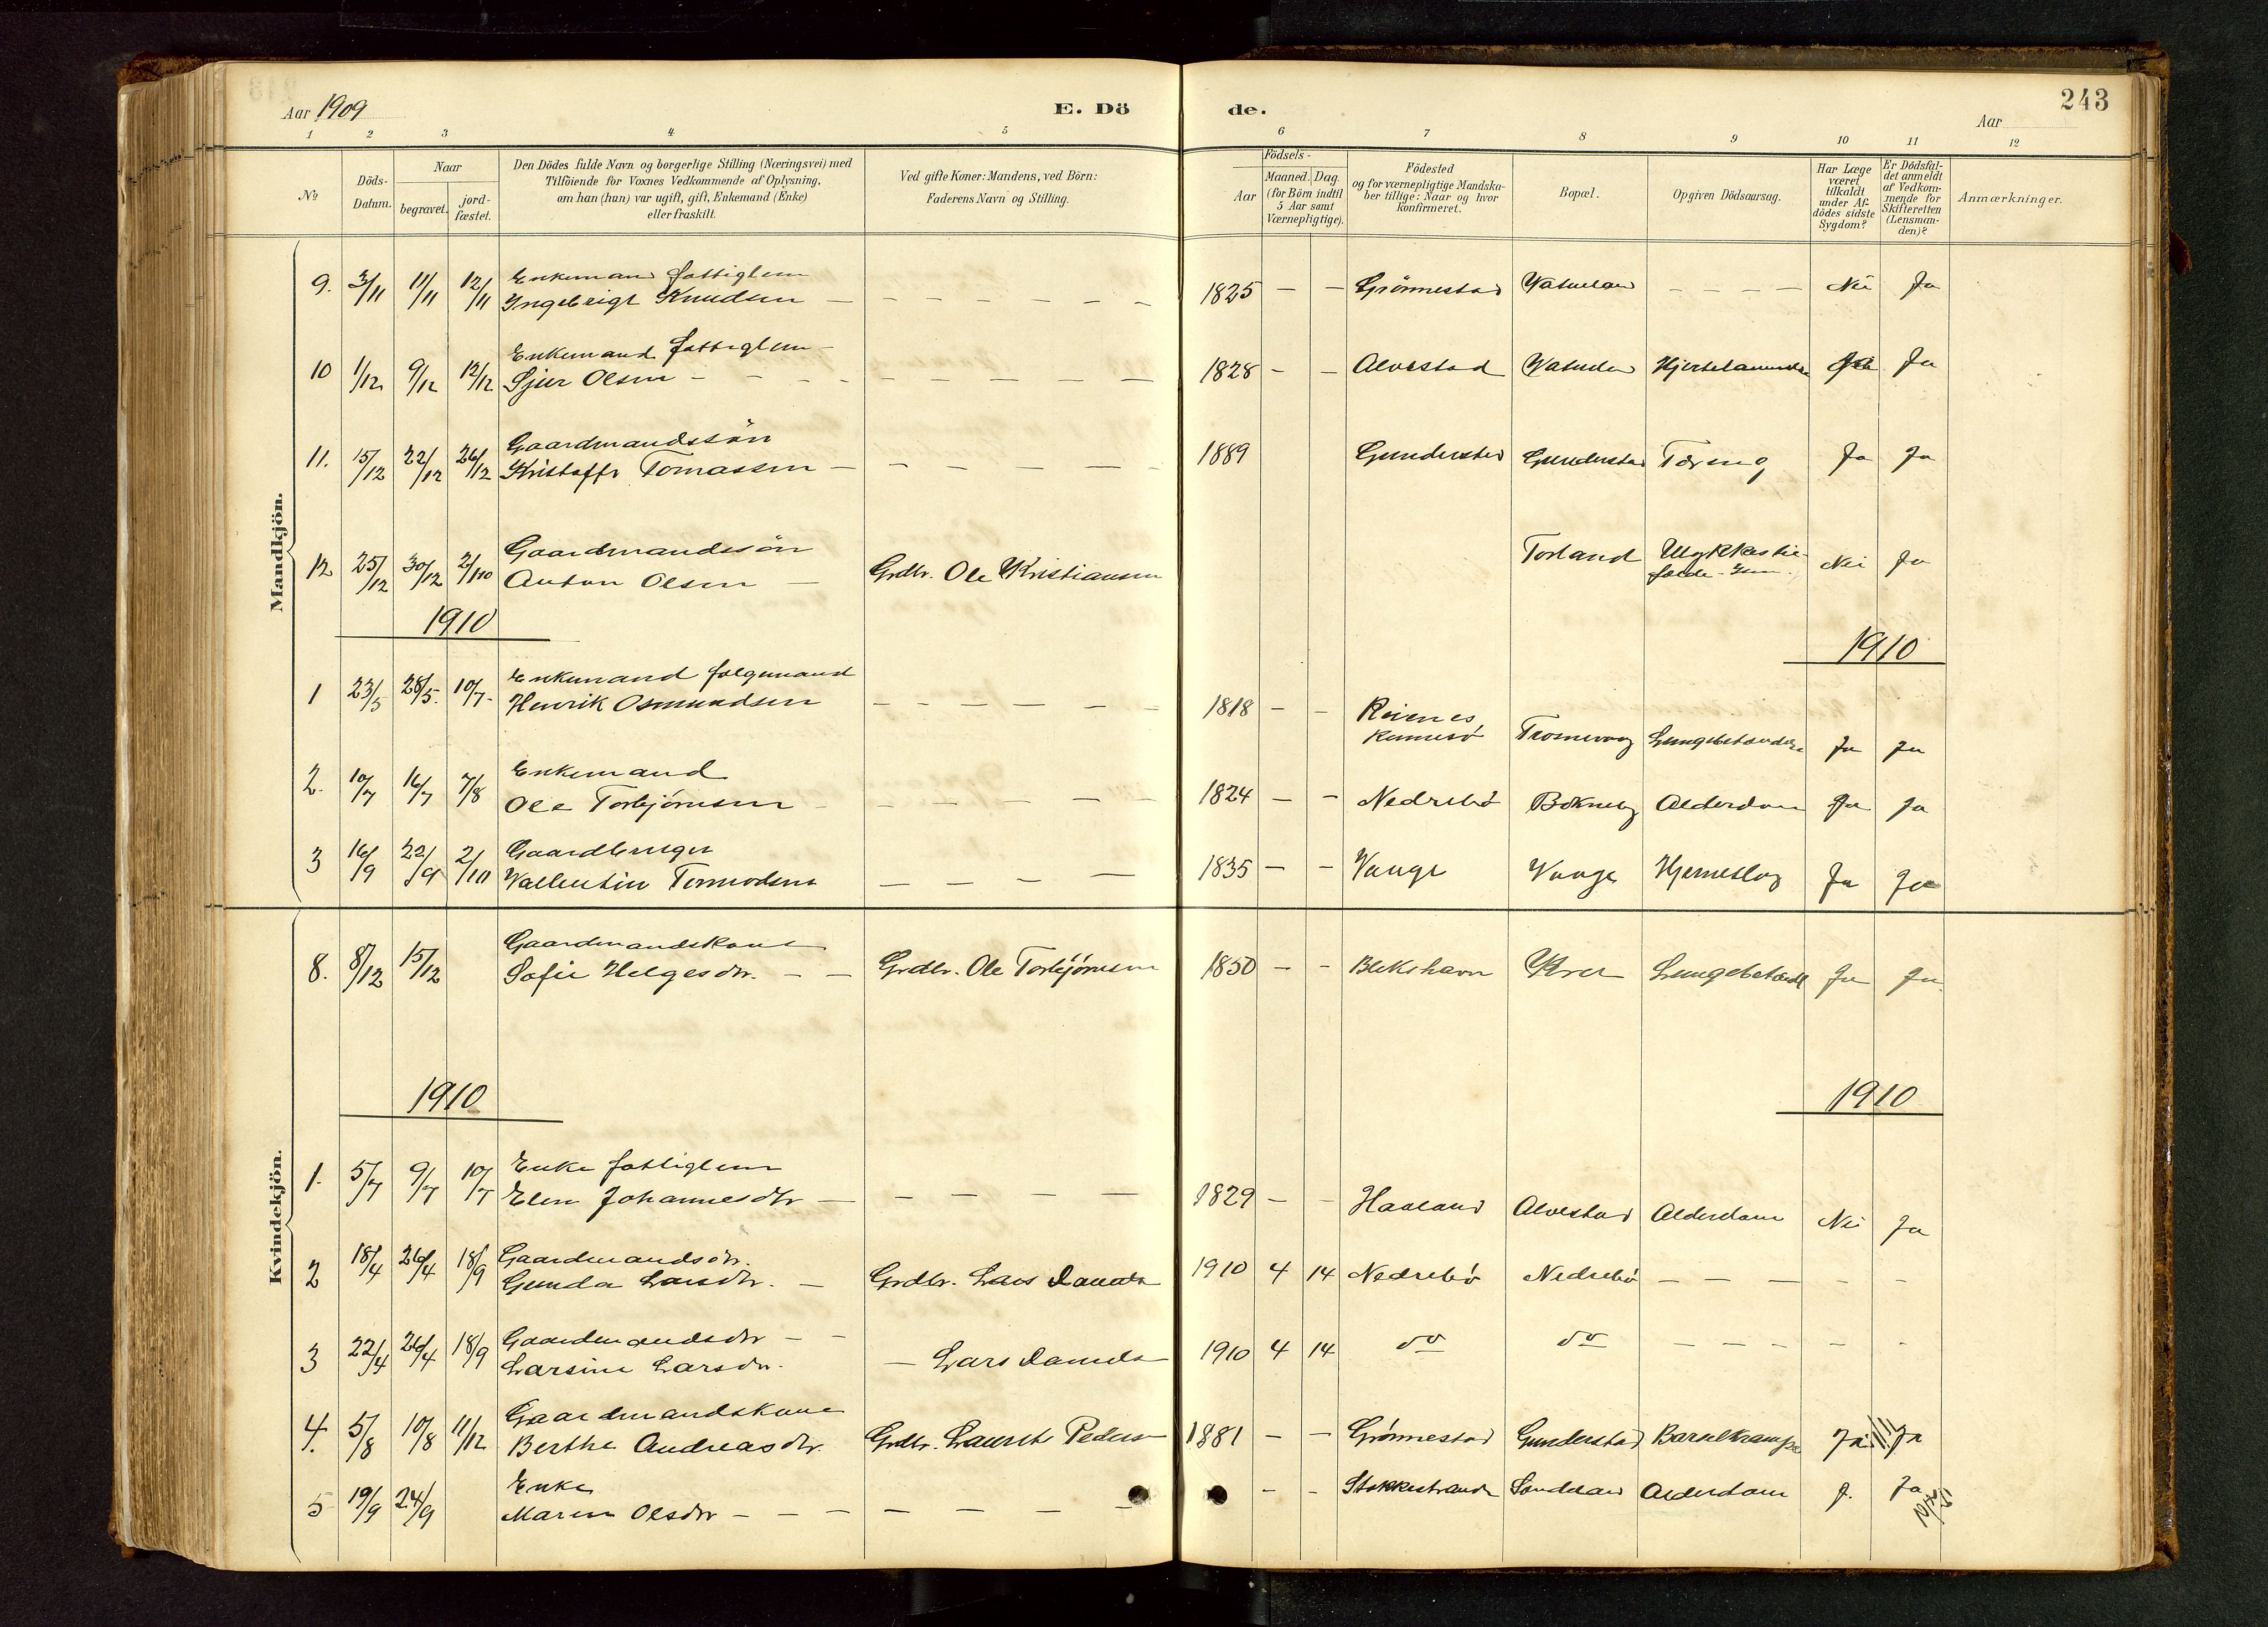 Aar 1909
E. Dö
de.
Aar
243
1 2 3 4 5 6 7 8 9 10 11 12
No
Döds-
Datum.
Naar
begravet.
jord-
fæstet.
Den Dödes fulde Navn og borgerlige Stilling (Næringsvei) med
Tilföiende for Voxnes Vedkommende af Oplysning,
om han (hun) var ugift, gift, Enkemand (Enke)
eller fraskilt.
Ved gifte Koner: Mandens, ved Börn:
Faderens Navn og Stilling.
Födsels-
Aar
Maaned. Dag.
(for Börn indtil
5 Aar samt
Værnepligtige).
Födested
og for værnepligtige Mandska-
ber tillige: Naar og hvor
konfirmeret.
Bopæl.
Opgiven Dödsaarsag.
Har Læge
været
tilkaldt
under Af-
dödes sidste
Sygdom?
Er Dödsfal-
det anmeldt
af Vedkom-
mende for
Skifteretten
(Lensman-
den)?
Anmærkninger.
Mandkjön.
Enkemand fattiglem
9. 3/11 11/11 12/11 Ingebrigt Knudsen – – – – – – 1825 – – Grönnestad – – – – Nei Ja
Enkemand fattiglem
10 1/12 9/12 12/12 Sjur Olsen – – – – – – 1828 – – Alvestad Ja
Gaardmandssön
11. 15/12 22/12 26/12 Kristoffr Tomassen – – – – – 1889 Gunderstad Gunderstad Tæring Ja Ja
Gaardmandssön
12 25/12 30/12 2/1 10 Anton Olsen – Grdbr. Ole Kristiansen Torland Nei Ja
1910
1910
Enkemand folgemand
1 23/5 28/5. 10/7. Henrik Osmundsen – – – – – 1818 – – Reienes
Rennesö Lungebetændelse Ja Ja
Enkemand
2. 10/7 16/7 7/8 Ole Torbjörnsen – – – – – 1824 – – Nedrebö Bokneby Alderdom Ja Ja
Gaardbruger
3 16/9 22/9 2/10 Vallentin Tormodsen – – – – 1835 – – Vaage Vaage Hjerneslag Ja Ja
Kvindekjön.
Gaardmandskone
8. 8/12 15/12 Sofie Helgesdtr. – – Grdbr. Ole Torbjörnsen 1850 – – Blikshavn Lungebetændl Ja Ja
1910
1910
Enke fattiglem
1. 5/7 9/7 10/7 Elen Johannesdtr – – – – – 1829 – – Haaland Alvestad Alderdom Nei Ja
Gaardmandsdtr.
2 18/4 26/4 18/9 Gunda Larsdtr. – Grdbr. Lars Daniels 1910 4 14 Nedrebö Nedrebö – – – – –
Gaardmandsdtr – –
3 22/4 26/4 18/9 Larsine Larsdtr. – Lars Daniels 1910 4 14 do do – – – – –
Gaardmandskone
4. 5/8 10/8 11/12 Berthe Andreasdtr. Grdbr. Laurits Peders 1881 – – Grönnestad Gunderstad Barselkrampe Ja Ja
Enke
5 19/9 24/9 Maren Olsdtr – – – – – – – – Stokkestrand Alderdom J. Ja